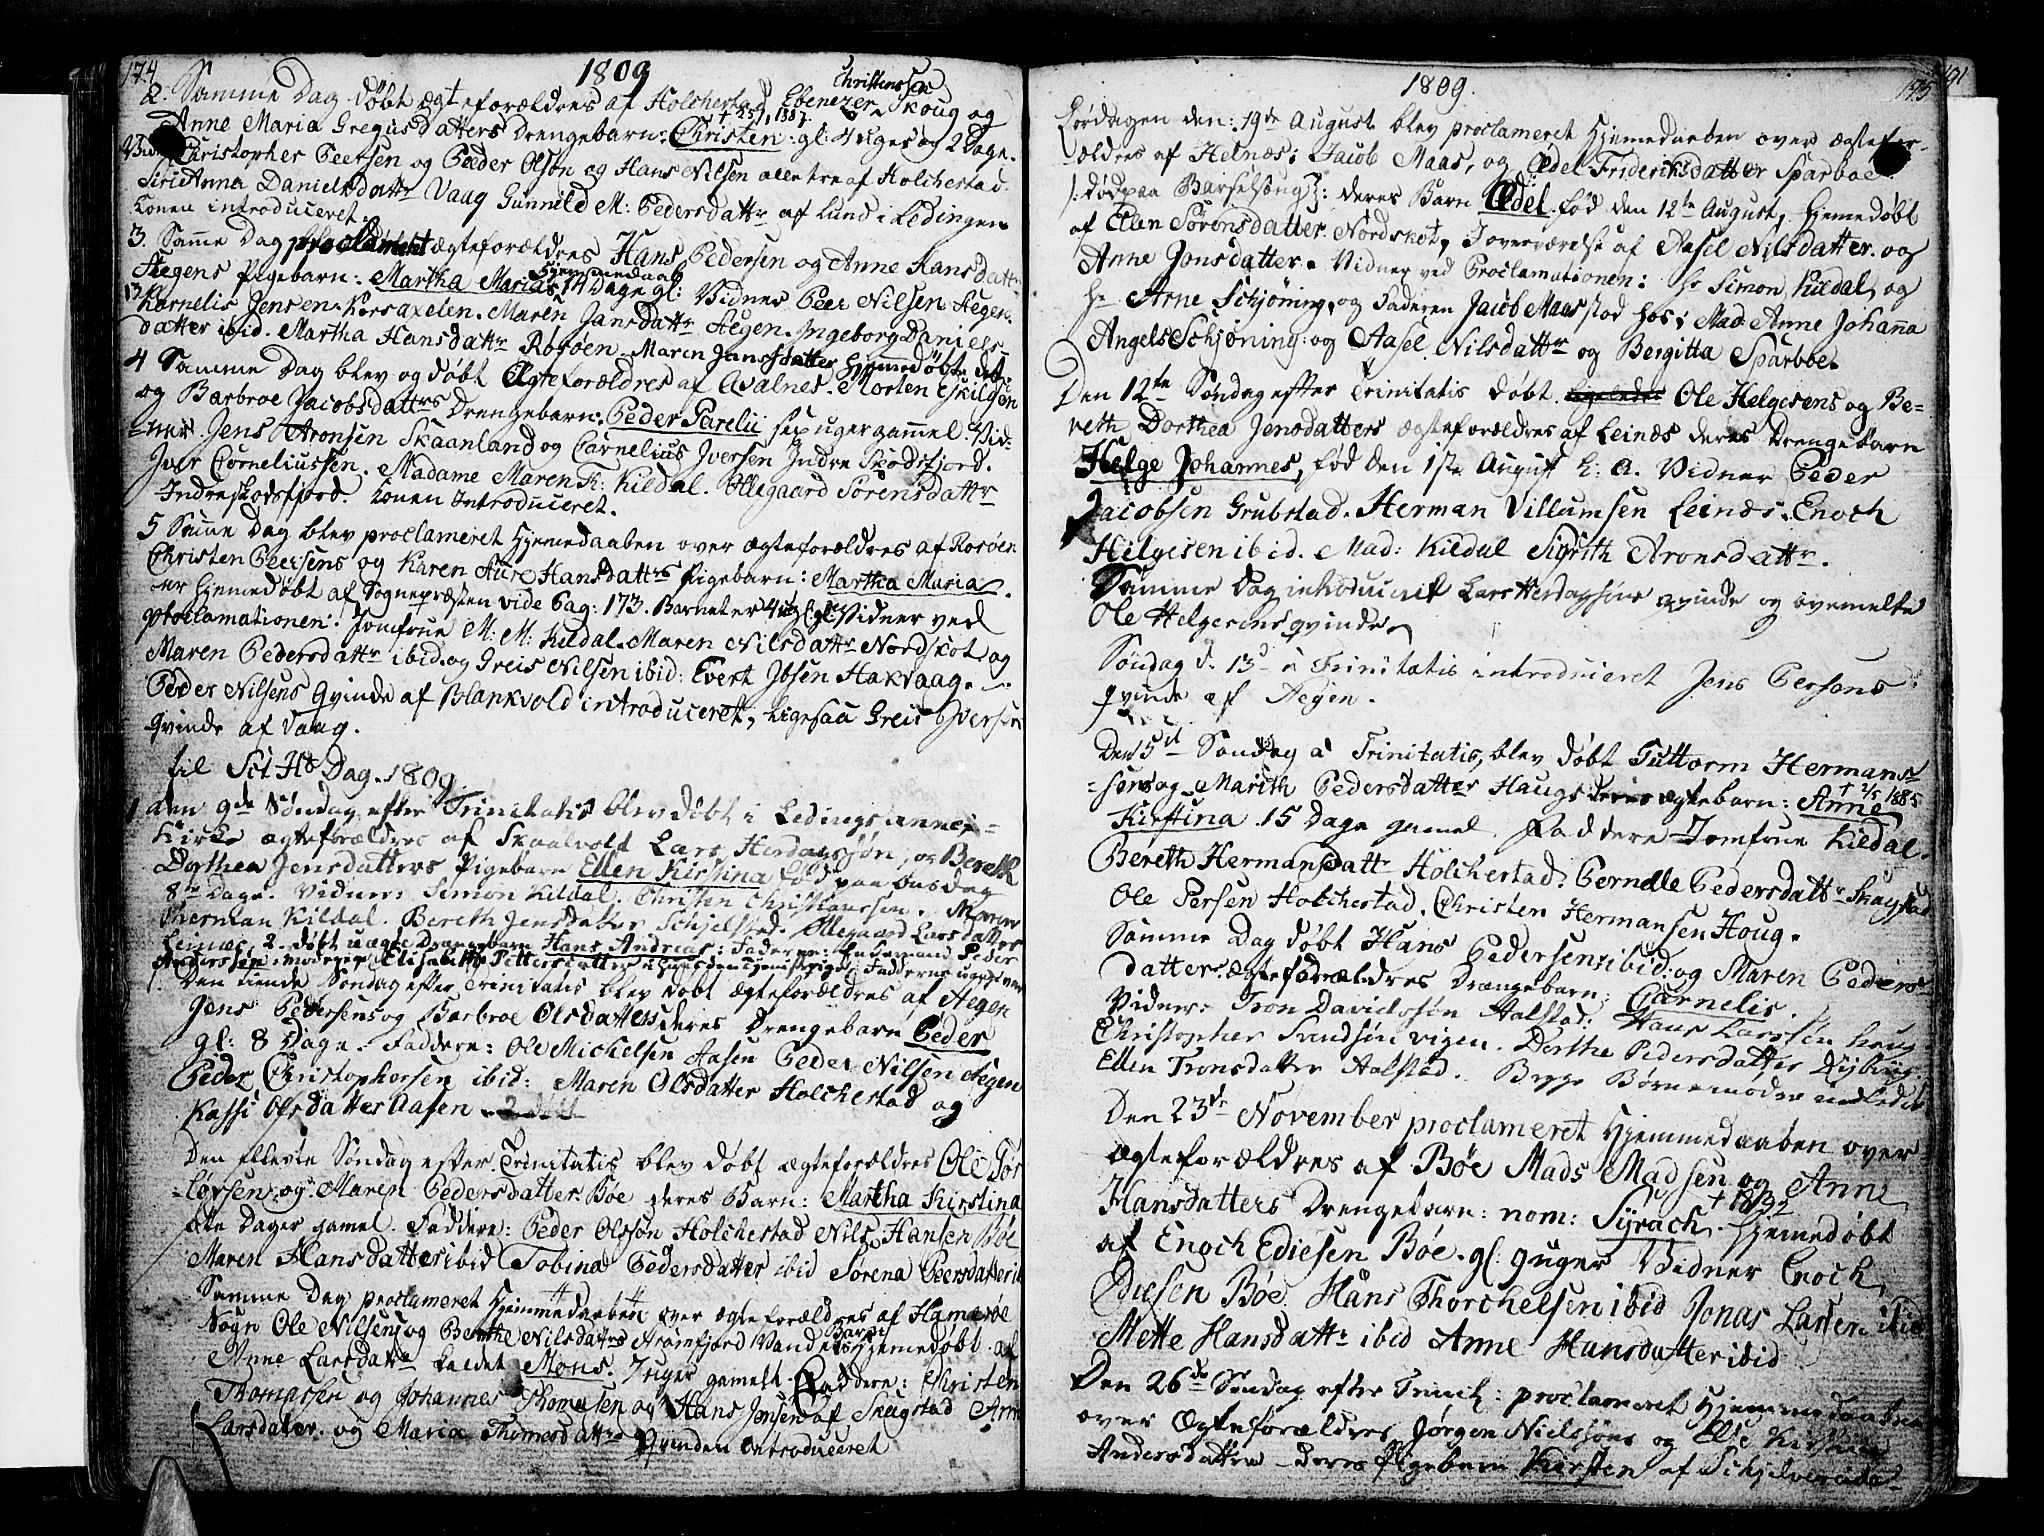 174
1809
2. Samme Dag døbt Ægteforældres af Holchestad Ebenezer Christenssen Skoug og
Anne Maria Gregusdatters Drengebarn: Christen: gl: 4 uger og 2 Dage.
+ 25/1 1887.
Vidn Christopher Peersen og Peder Olsøn og Hans Nilsen alle tre af Holchestad.
Siri Anna Danielsdattr Vaag Gunnild M: Pedersdattr af Lund i Ledingen
Konen introduceret.
3. Samme Dag proclameret ægteforældres Hans Pedersen og Anne Hansdattr
Hegens Pigebarn: Martha Marias Hjemmedaab 14 Dage gl: Vidner Peer Nilsen Hegen.
Kornelis Jensen Korsaxelen. Maren Jansdattr Hegen. Ingeborg Daniels-
datter ibid. Martha Hansdattr Rosøen. Maren Jansdatter hjemmedøbte det.
4 Samme Dag blev og døbt Ægteforældres af Avalnes. Morten Eskilsøn
og Barbroe Jacobsdattrs Drengebarn: Peder Parelii sex uger gammel. Vid-
=ner. Jens Aronsen Skaanland og Cornelius Iversen Indre Skodsfjord.
Iver Corneliussen. Madame Maren K: Kildal. Ollegaard Sørensdattr
Indreskodsfjord. Konen Introduceret.
5 Samme Dag blev proclameret Hjemedaaben over ægteforældres af Rosøen
Christen Peersens og Karen Hansdattrs Pigebarn: Martha Maria
er Hjemedøbt af Sognepræsten vide Pag: 173. Barnet er 4 ug: gl: Vidner ved
proclamationen. Jomfrue M: M: Kildal. Maren Nilsdattr Nordskot og
Maren Pedersdattr ibid. og Greis Nilsen ibid: Evert Ibsen Hakvaag.
Peder Nilsens Qvinde af Blankvold introduceret, ligesaa Greis Iversens
Qvinde af Vaag.
til Sct Hs Dag. 1809
1 den 9de Søndag efter Trinitatis blev døbt i Ledings annex=
Kirke ægteforældres af Skaalvold Lars Herdagssøn, og Bereth
Dorthea Jensdatters Pigebarn Ellen Kirstina fød paa Onsdag
8te Dage. Vidner: Simon Kildal. Christen Christianssen. Maren
Herman Kildal. Bereth Jensdatter Schjelstad. Ollegaard Larsdatter
Leinæs. 2. døbt uægte Drengebarn Hans Andreas: Faderen: Peder
Anderssen. moderen Elisabeth Pettersdatter
Den tiende Søndag efter Trinitatis blev døbt Ægteforældres af Hegen
Jens Pedersens og Barbroe Olsdatters deres Drengebarn Peder
gl: 8 Dage. Faddere: Ole Mickelsen Aasen Peder Nilsen Hegen
Peder Christophersen ibid: Maren Olsdatter Holchestad og
Kassi Olsdatter Aasen
Den ellevte Søndag efter Trinitatis blev døbt ægteforældres Ole Tor
=levsen, og Maren Pedersdatter Bøe deres Barn: Martha Kirstina
otte Dager gamel. Faddere: Peder Olssøn Holchestad Nils Hansen Bøe
Maren Hansdatter ibid Tobina Pedersdatter ibid Sørena Peersdatter
Samme Dag proclameret Hjemmedaaben over ægteforældres af Hamerøe
Sogn Ole Nilsens og Berthe Nilsdatters Barn Hjemedøbt af
Anne Larsdattr kaldet Mons. 7 uger gamelt. Faddere: Christen
Thomassen og Johannes Thomesen og Hans Jensen af Skugstad Anne
Larsdater og Maria Thomesdatter Qvinden introduceret
1809.
175
191
Lørdagen den: 19de August blev proclameret Hjemedaaben over ægtefor-
ældres af Helnæs: Jacob Maas, og Ædel Frideriksdatter Sparboe
/: død paa Barselseng :/ deres Barn Ædel. fød den 12te August, Hjemedøbt
af Elen Sørensdatter Nordskot, I overværelse af Aasel Nilsdatter. og
Anne Jonsdatter. Vidner ved Proclamationen: Hr Simon Kildal, og
Hr Arne Schjøning, og Faderen Jacob Maas stod hos; Mad: Anne Johana
Angel Schjøning: og Aasel Nilsdattr og Bergitta Sparboe.
Den 12te Søndag efter Trinitatis døbt Ole Helgesens og Be=
reth Dorthea Jensdatters ægteforældres af Leinæs deres Drengebarn
Helge Johannes, fød den 1ste August h: a. Vidner Peder
Jacobsen Grubstad. Herman Villumsen Leinæs. Enoch
Helgesen ibid. Mad: Kildal Sigrith Aronsdattr.
Samme Dag introduceret Lars Herdagsøns qvinde og ovemelte
Ole Helgesens qvinde.
Søndag d. 13d a Trinitatis introduceret Jens Persens
qvinde af Hegen.
Den 15d Søndag a Trinitatis, blev døbt Tuttorm Hermans-
=sens og Marith Pedersdatter Haugs ægtebarn: Anne
+ 2/5 1885
Kirstina 15 Dage gamel. Faddere Jomfrue Kildal.
Bereth Hermansdattr Holchestad. Pernelle Pedersdattr Skagstad
Ole Persen Holchestad. Christen Hermansen Houg.
Samme Dag døbt Hans Pedersens ibid: og Maren Peders=
datter ægteforældres Drængebarn: Cornelis.
Vidner: Tron Davidssøn Aalstad: Hans Larssen houg.
Christopher Svendsøn vigen. Dorthe Pedersdatter
Ellen Tronsdatter Aalstad. Begge Børnemødre
Den 23de November proclameret Hjemmedaaben over
Ægteforældres af Bøe Mads Madsen og Anne
Hansdatters Drengebarn: nom: Syrach. Hjemedøbt
af Enoch Ediesen Bøe. gl: 9 uger Vidner Enoch
Ediesen Bøe. Hans Thorchelsen ibid Jonas Larsen ibid
Mette Hansdattr ibid Anne Hansdatter ibid
Den 26de Søndag efter Trinit: proclameret Hjemmedaaben
over Ægteforældres Jørgen Nielssøns og Else Kirstina
Andersdatters - deres Pigebarn Kirsten af